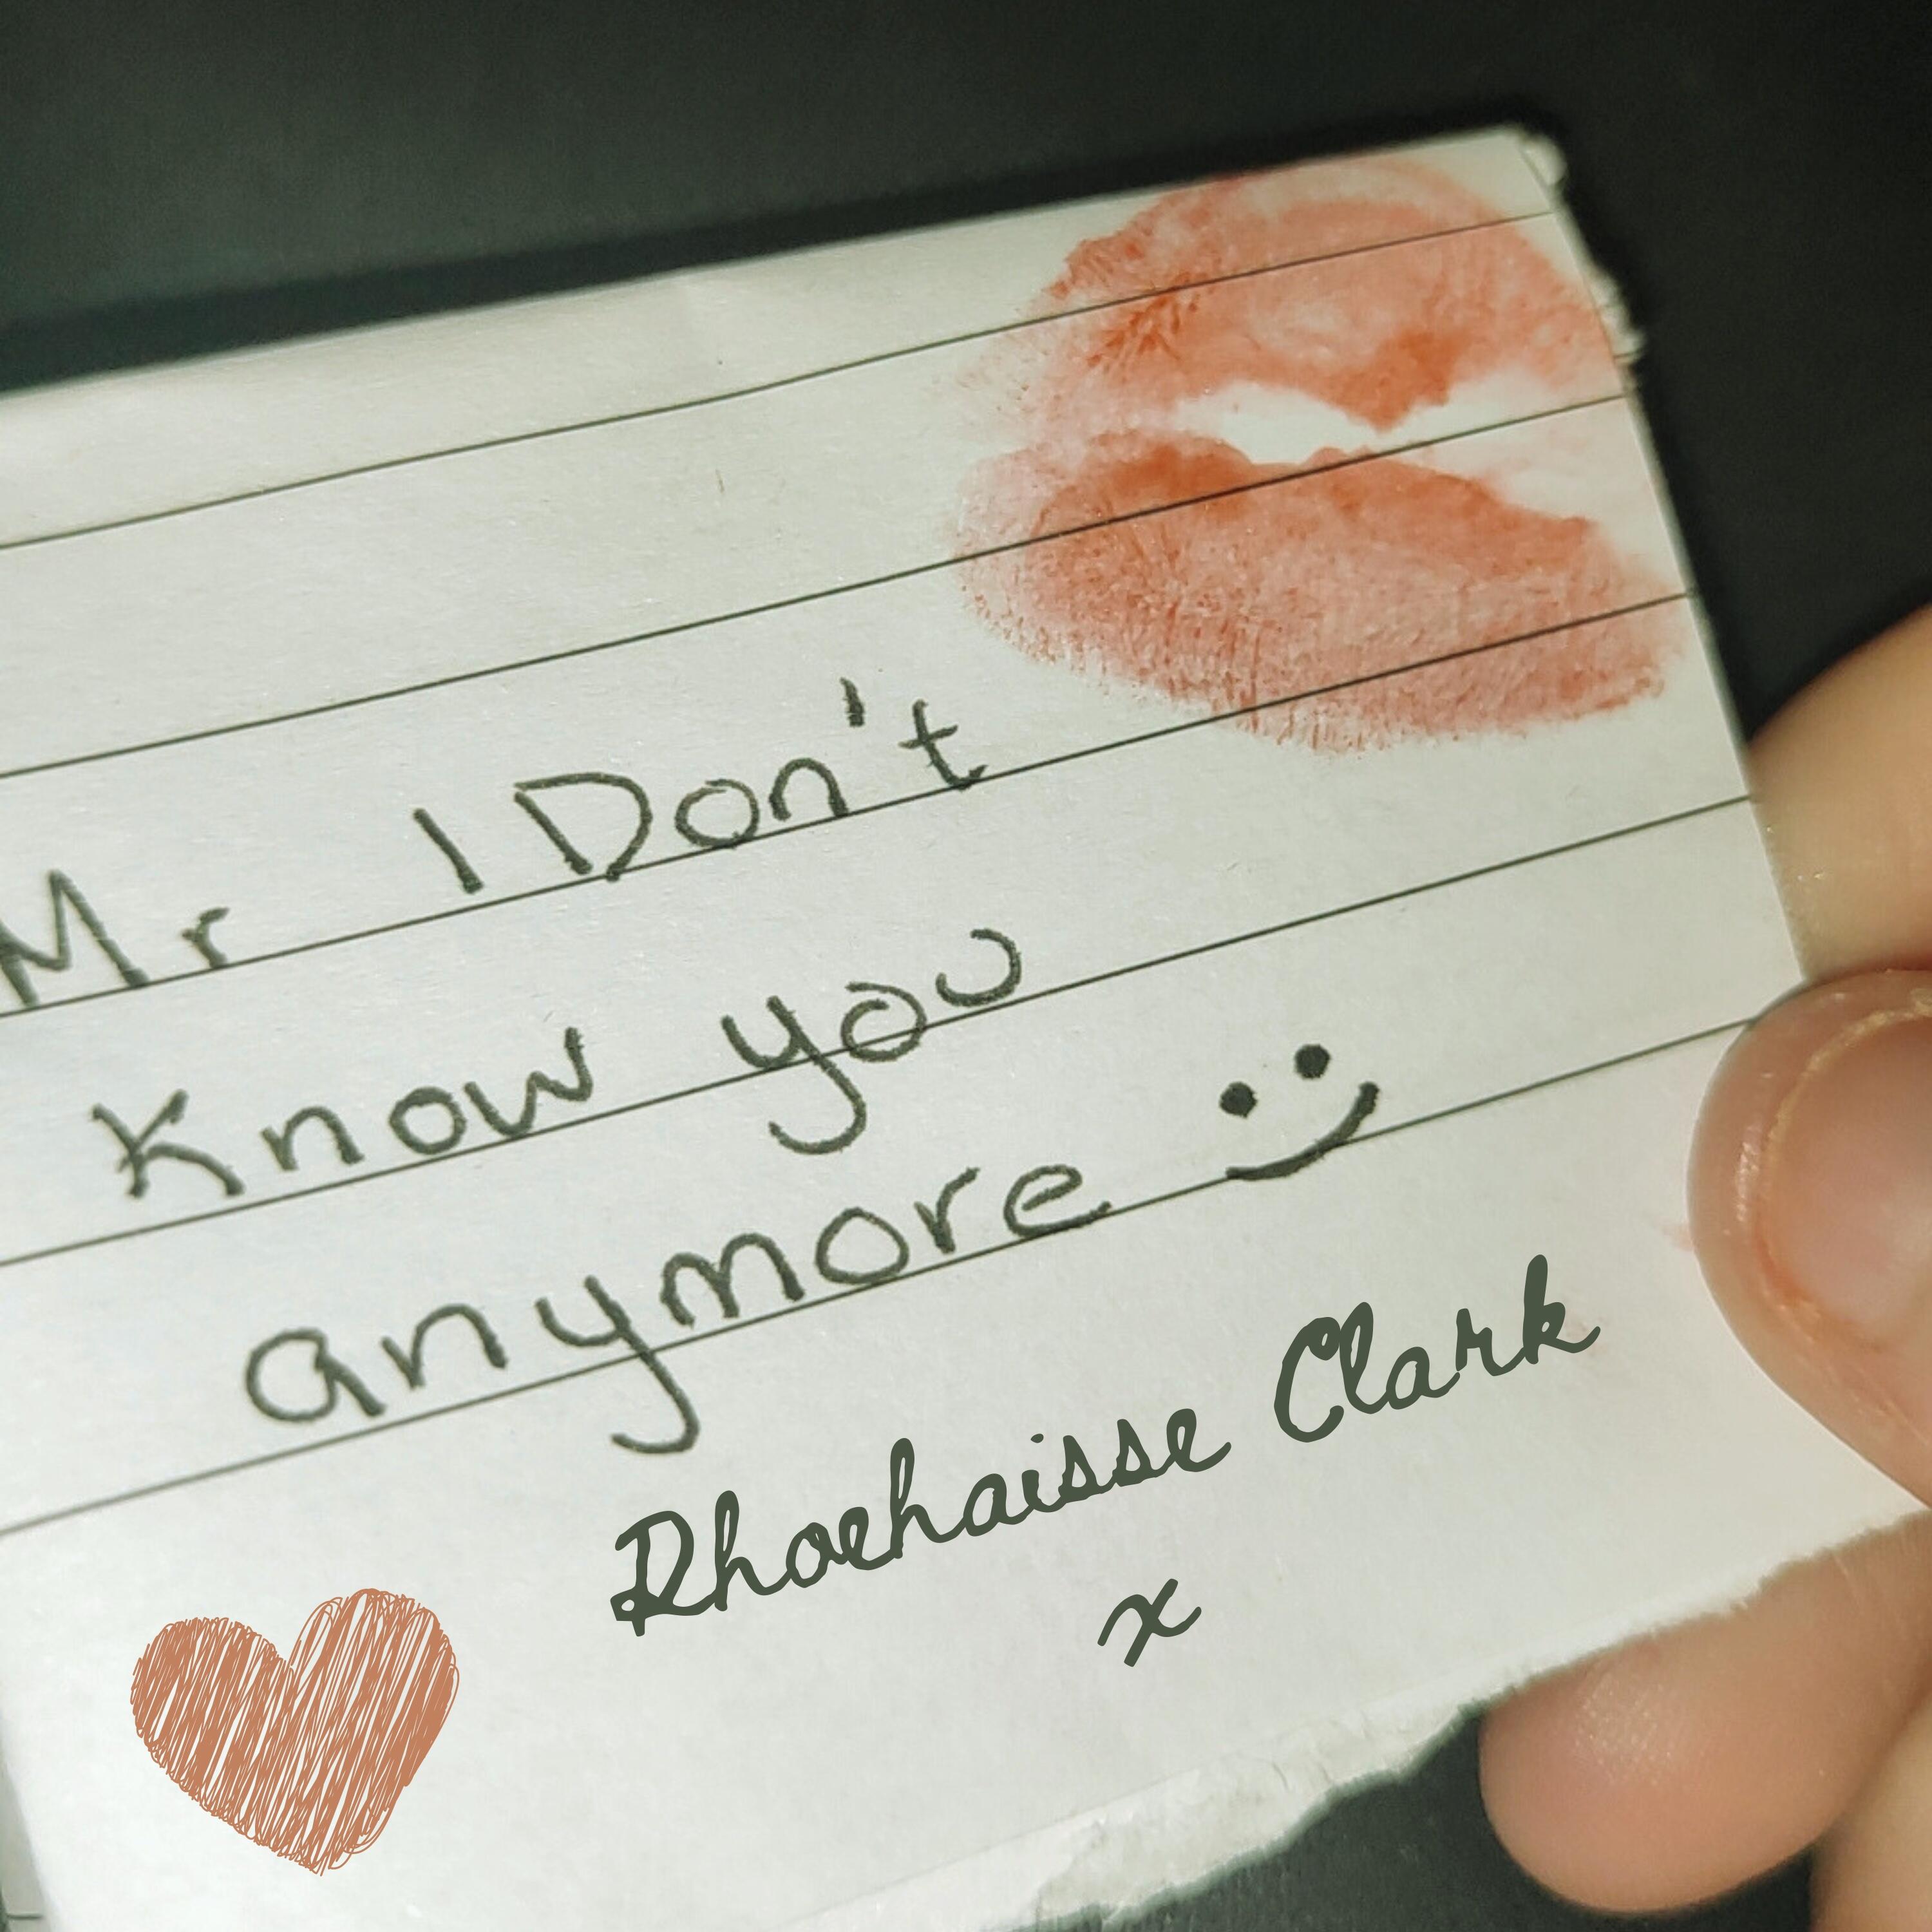 Mr I Don't
Know you
anymore
Rhoehaisse Clark
x